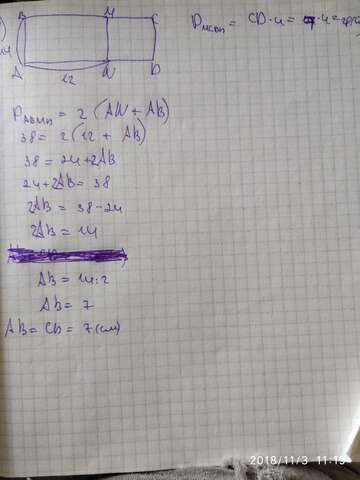 B M C
A N D
12
P_MCDN = CD·4 =
P_ABMN = 2 (AN + AB)
38 = 2(12 + AB)
38 = 24 + 2AB
24 + 2AB = 38
2AB = 38 - 24
2AB = 14
AB = 14:2
AB = 7
AB = CD = 7 (см)
2018/11/3 11:15